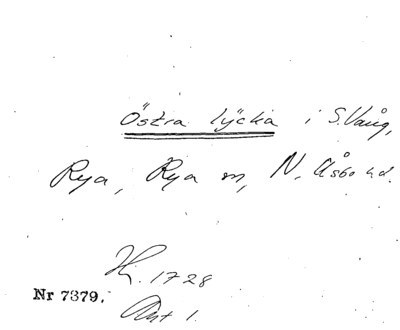 Östra lycka i S. Vång,
Rya, Rya sn, N. Åsbo hd.
Hj. 1728
Nr 7379.
Akt 1.